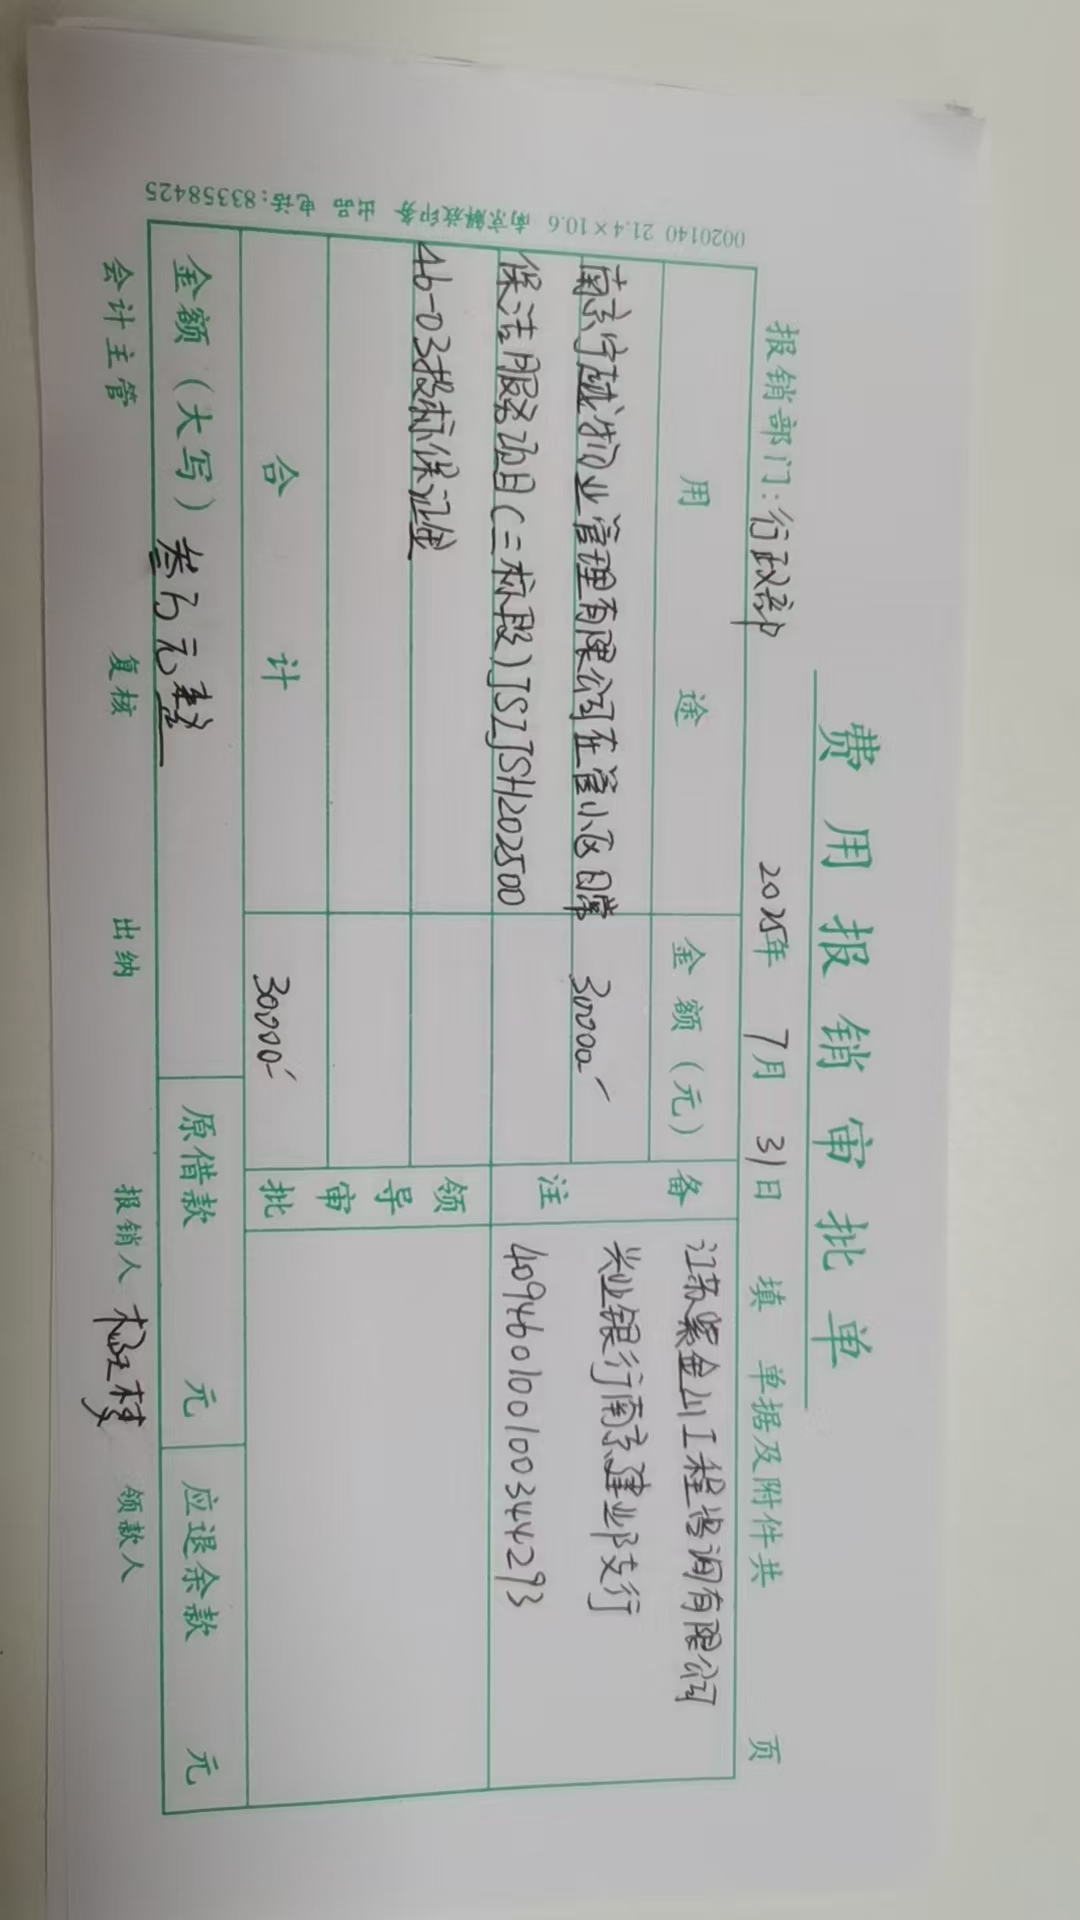 费用报销审批单
报销部门：行政部 2025年 7月 31日 填 单据及附件共 页
用途 金额（元） 备注
南京宁城物业管理有限公司在管小区日常 30000- 江苏紫金山工程咨询有限公司
保洁服务项目（二标段）JSZJSH202500 兴业银行南京建邺支行
46-03投标保证金 409460100100344293
领导审批
合计 30000-
金额（大写）叁万元整 原借款 元 应退余款 元
会计主管 复核 出纳 报销人 领款人
0020140 21.4×10.6 南京解放印务 出品 电话：83358425